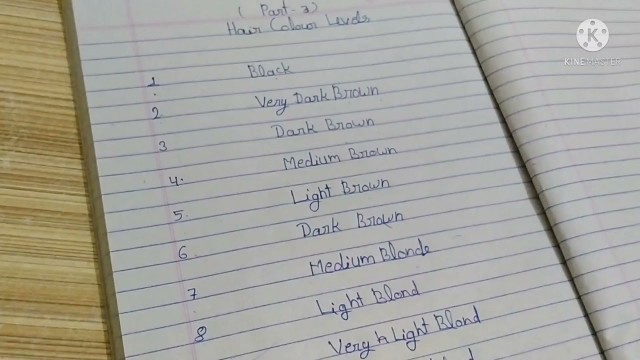 ( Part-3)
Hair Colour Levels
1 Black
2. Very Dark Brown
3 Dark Brown
4. Medium Brown
5. Light Brown
6. Dark Brown
7 Medium Blonde
8 Light Blond
Very h Light Blond
K
KINEMASTER